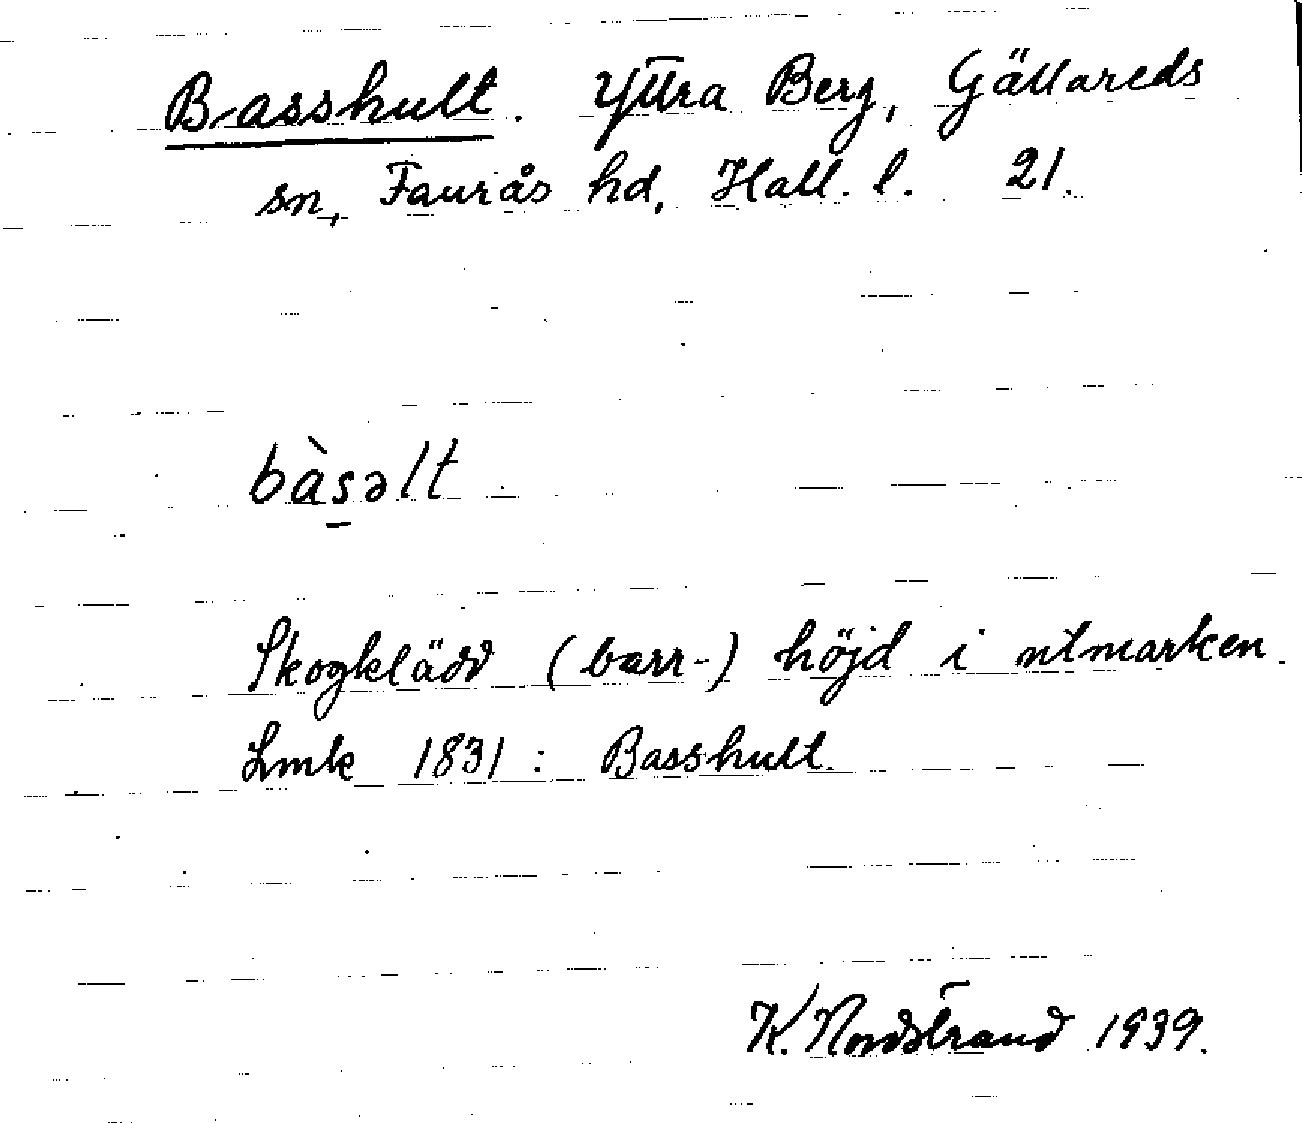 Basshult. Yttra Berg, Gällareds
sn, Faurås hd, Hall. l. 21.
bàs̱əlt
Skogklädd (barr-) höjd i utmarken.
Lmk 1831: Basshult.
K. Nordstrand 1939.